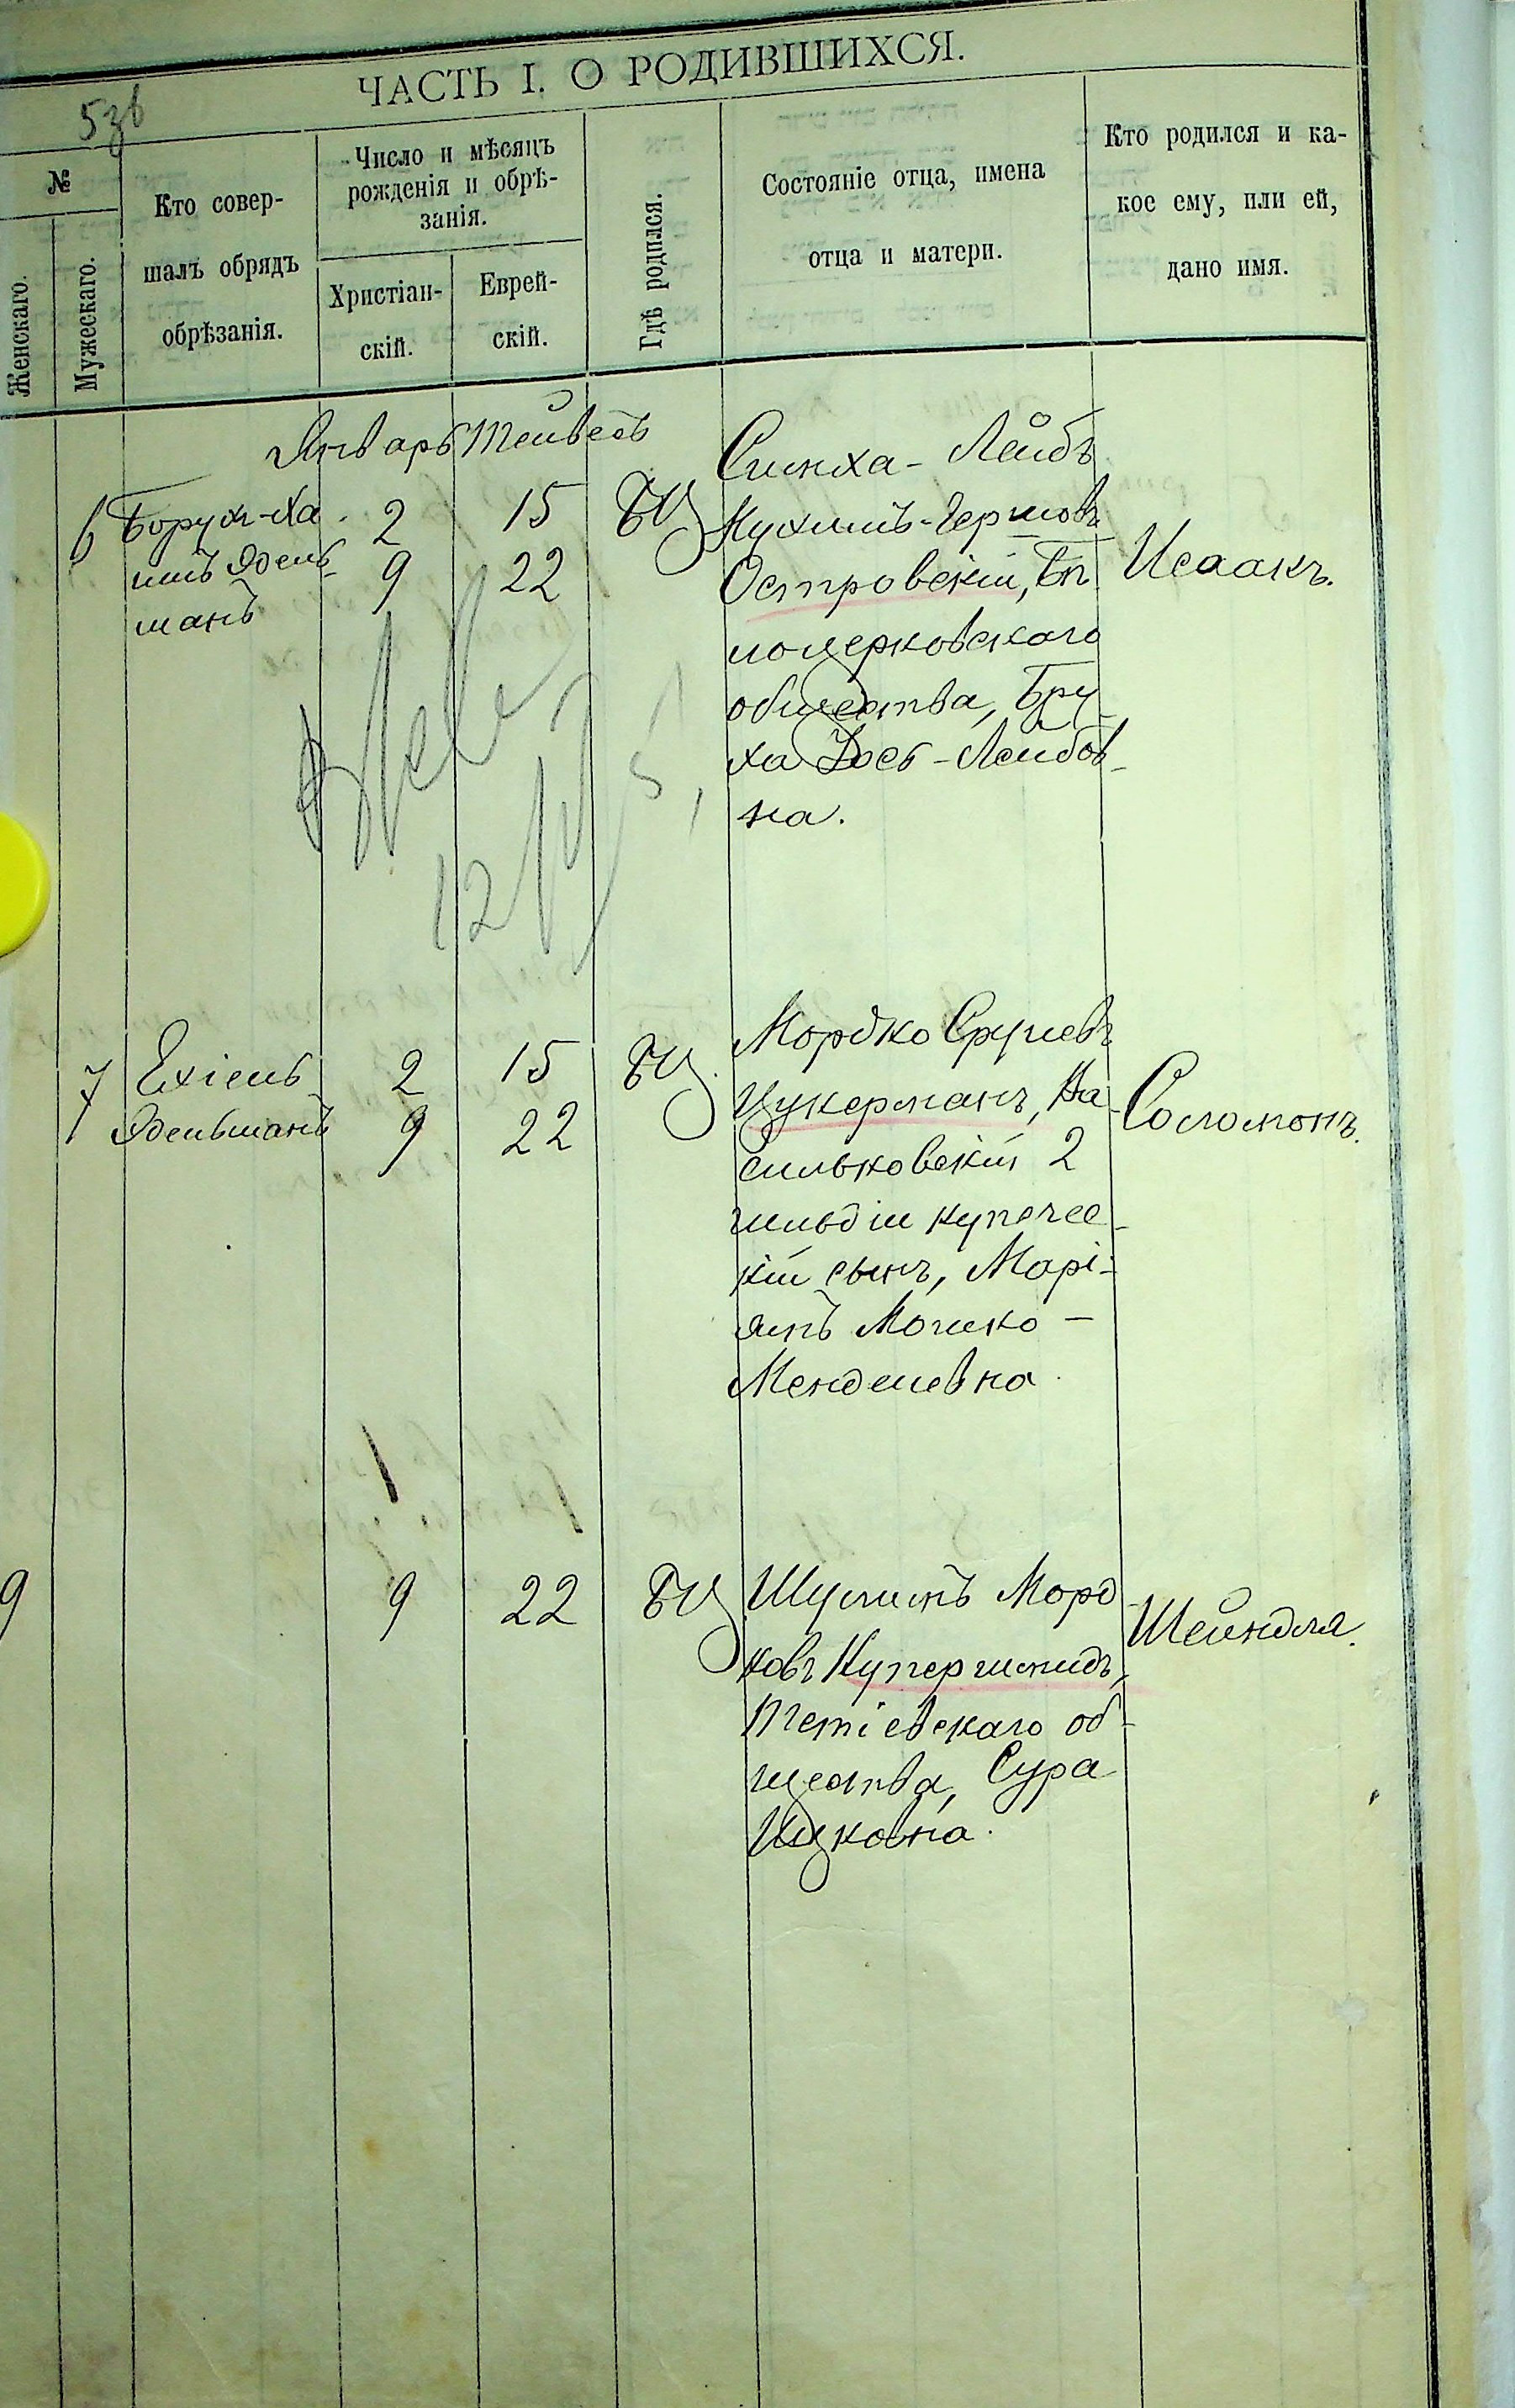 ЧАСТЬ I. О РОДИВШИХСЯ.
5зв
№
Женскаго.
Мужескаго.
Кто совер-
шалъ обрядъ
обрѣзанія.
Число и мѣсяцъ
рожденія и обрѣ-
занія.
Христіан-
скій.
Еврей-
скій.
Гдѣ родился.
Состояніе отца, имена
отца и матери.
Кто родился и ка-
кое ему, или ей,
дано имя.
Январь Тейвесъ
6 Борухъ-Ха
имъ Эдель
манъ
2 15 БЦ
9 22
Симха-Лейбъ
Нухимъ-Гершовъ
Островскій, Бѣ
лоцерковскаго
общества, Бру
ха Іось-Лейбов-
на.
Исаакъ.
12
7 Ехіель
Эдельманъ
2 15 БЦ.
9 22
Мордко Срулевъ
Цукерманъ, Ва
сильковскій 2
гильдіи купечес-
кій сынъ, Марі-
ямъ Мошко-
Менделевна.
Соломонъ.
9 9 22 БЦ
Шулимъ Морд
ковъ Купершмидъ,
Тетіевскаго об-
щества, Сура
Ицковна.
Шейндля.